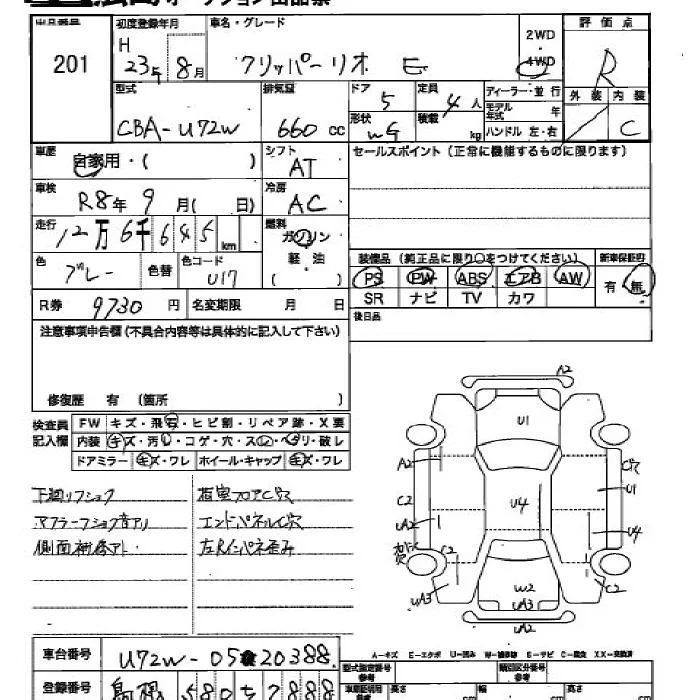 出品番号 初度登録年月 車名・グレード 2WD 評価点
201 H 23年 8月 クリッパーリオ E 4WD R
型式 排気量 ドア 5 定員 4人 ディーラー・並行 外装 内装
モデル年式 年
CBA-U72W 660 CC 形状 WG 積載 kg ハンドル 左・右 C
車歴 自家用・( ) シフト AT セールスポイント (正常に機能するものに限ります)
車検 R8年 9月( 日) 冷房 AC
走行 12万6千645km 燃料 ガソリン
軽油
( )
色 グレー 色替 色コード U17
装備品 (純正品に限り○をつけてください) 新車保証書
PS PW ABS エアB AW 有・無
SR ナビ TV カワ
R券 9730円 名変期限 月 日 後日品
注意事項申告欄(不具合内容等は具体的に記入して下さい)
修復歴 有 (箇所 )
検査員記入欄 FW キズ・飛石・ヒビ割・リペア跡・X要
内装 キズ・汚レ・コゲ・穴・スレ・ヘタリ・破レ
ドアミラー キズ・ワレ ホイール・キャップ キズ・ワレ
下廻リフショク
マフラーフショク音アリ エンドパネルC穴
側面補修アト 左Rインパネ歪み
A2
U1
A2 C穴
C2 U4 U1
UA2 U4
C2
UA3 W2 C2
UA3
UA2
A-キズ E-エクボ U-凹み W-補修跡 S-サビ C-腐食 XX-交換済
車台番号 U72W-0520388
型式指定番号 参考 類別区分番号 参考
登録番号 580 7888
長さ cm 幅 cm 高さ cm